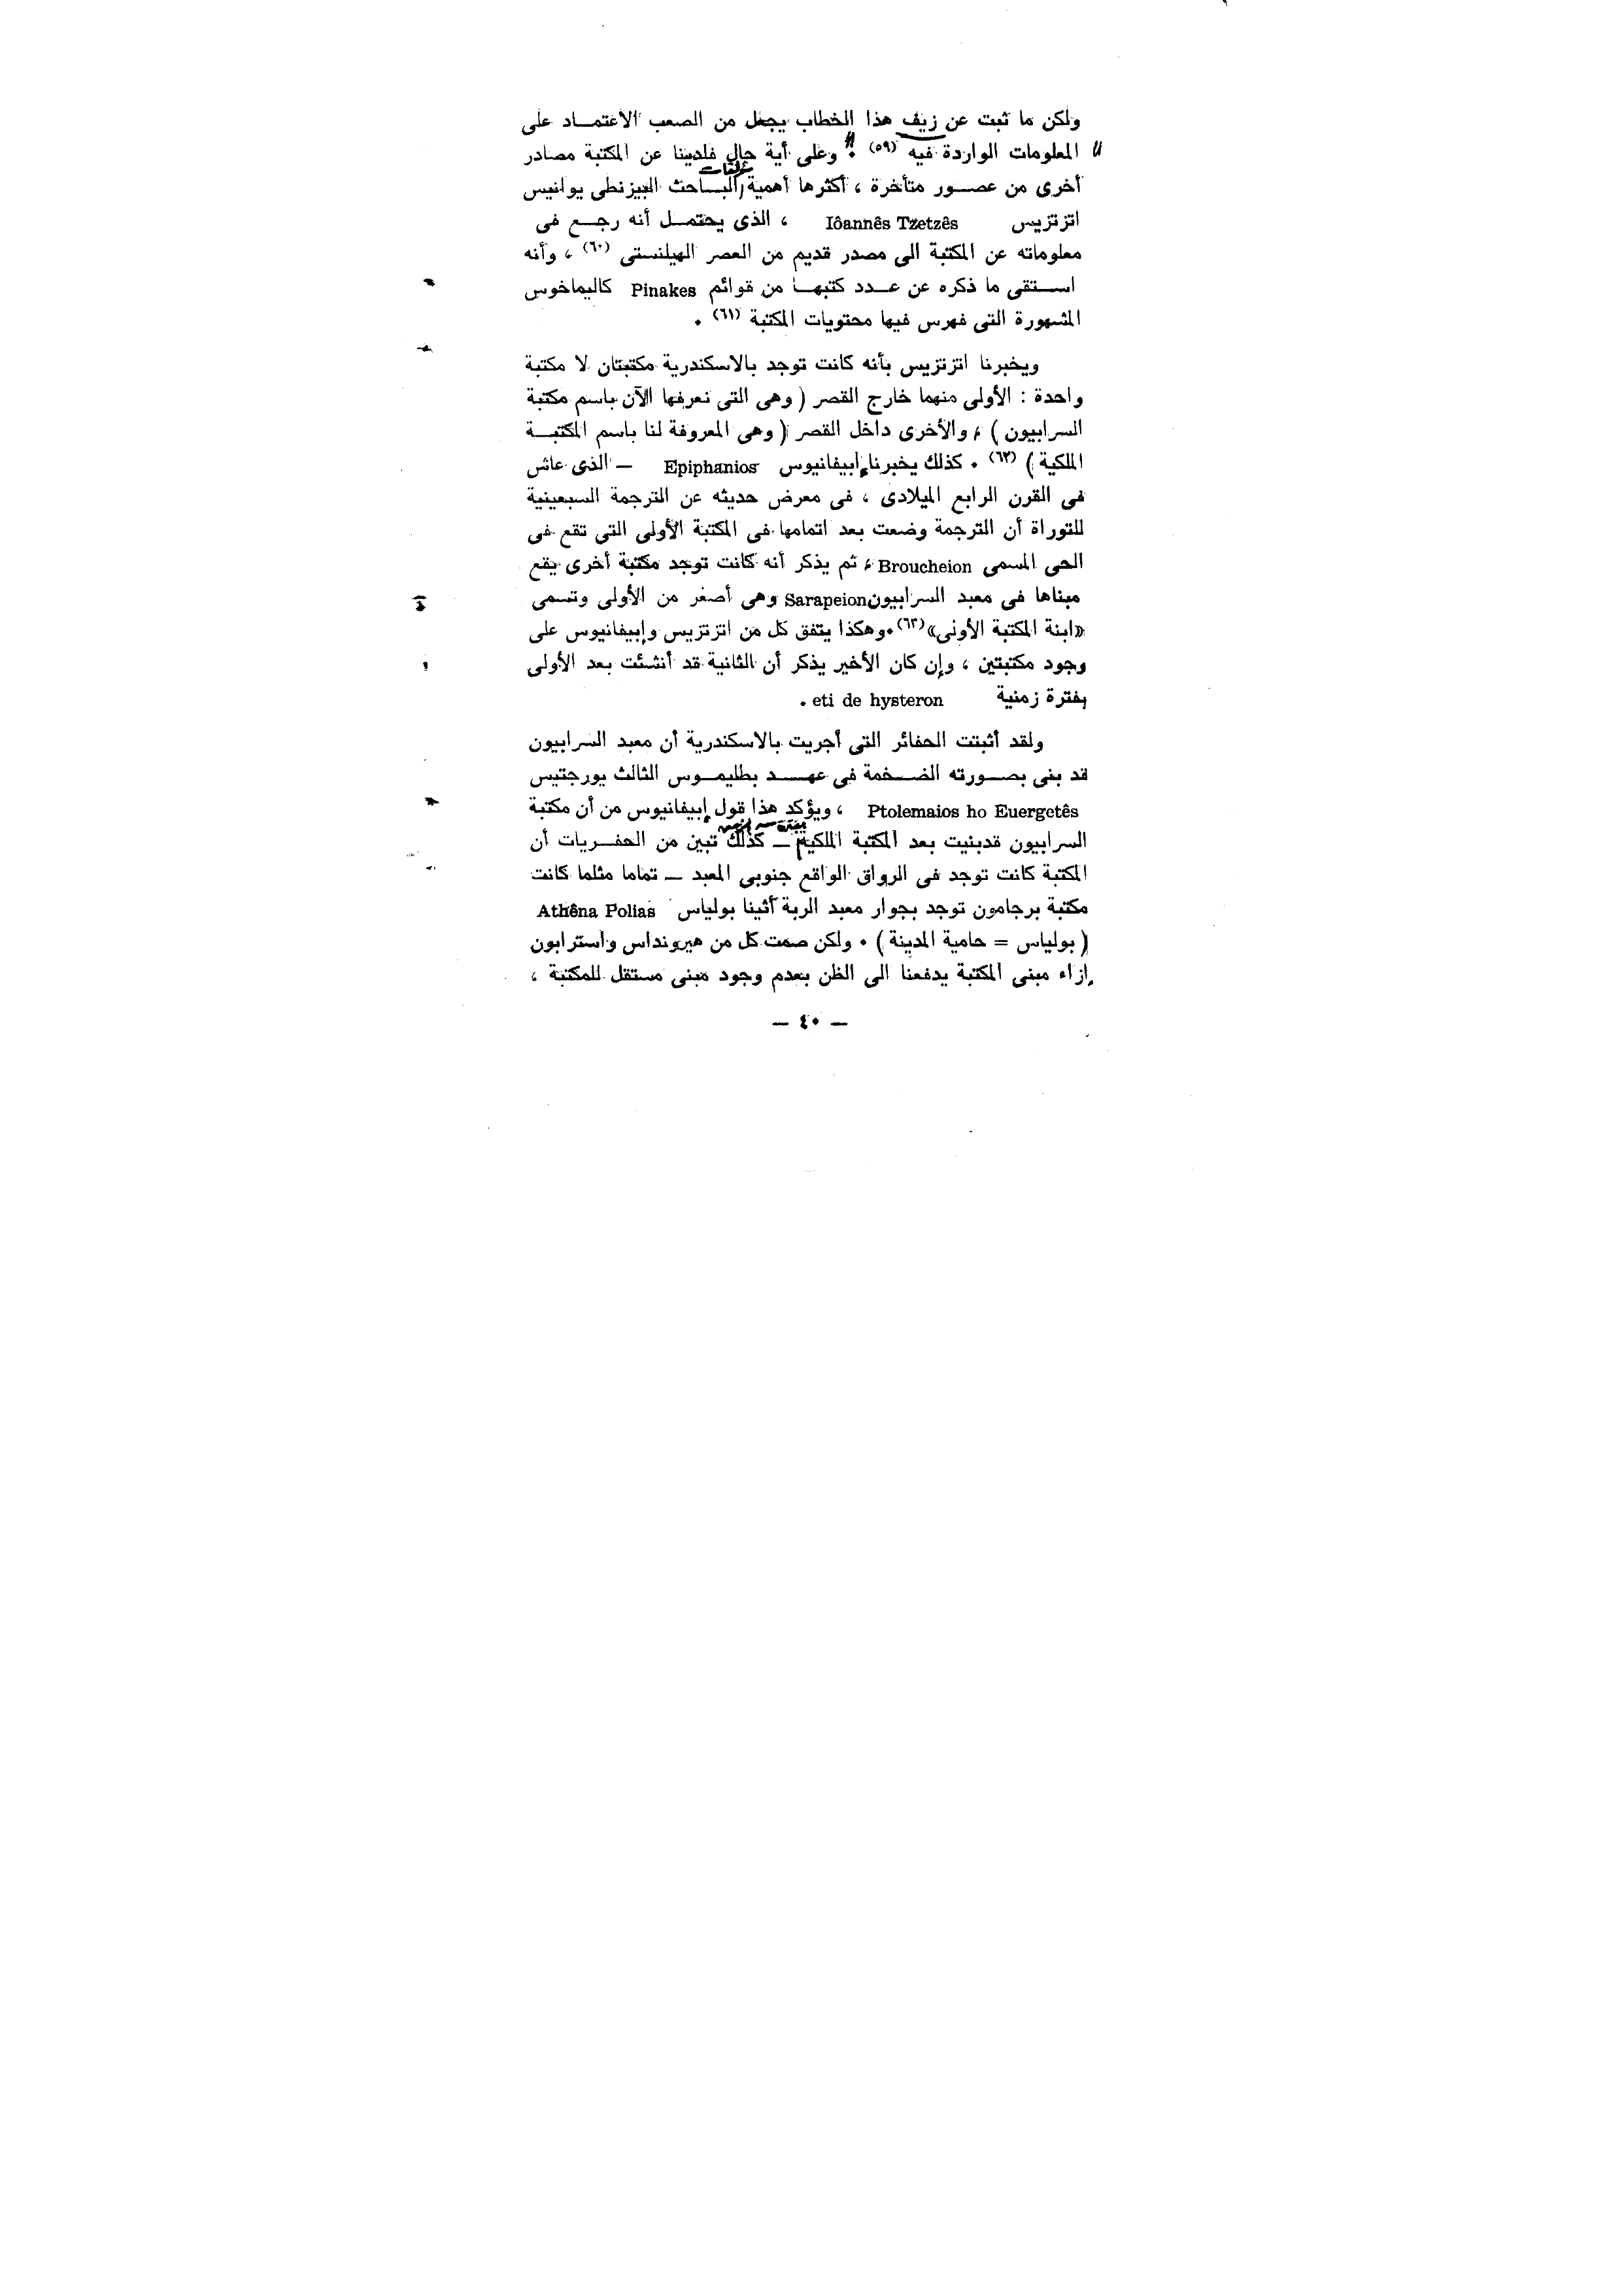 ولكن ما ثبت عن زيف هذا الخطاب يجعل من الصعب الاعتمـاد على
المعلومات الواردة فيه (٥٩) • وعلى أية حال فلدينا عن المكتبة مصادر
مؤلفات
أخرى من عصـور متأخرة ، أكثرها أهمية البـاحث البيزنطى يوانيس
اتزتزيس Iôannês Tzetzês ، الذى يحتمـل أنه رجـع فى
معلوماته عن المكتبة الى مصدر قديم من العصر الهيلنستى (٦٠) ، وأنه
اسـتقى ما ذكره عن عـدد كتبهـا من قوائم Pinakes كاليماخوس
المشهورة التى فهرس فيها محتويات المكتبة (٦١) •
ويخبرنا اتزتزيس بأنه كانت توجد بالاسكندرية مكتبتان لا مكتبة
واحدة : الأولى منهما خارج القصر ( وهى التى نعرفها الآن باسم مكتبة
السرابيون ) ، والأخرى داخل القصر ( وهى المعروفة لنا باسم المكتبـة
الملكية ) (٦٢) • كذلك يخبرنا إبيفانيوس Epiphanios — الذى عاش
فى القرن الرابع الميلادى ، فى معرض حديثه عن الترجمة السبعينية
للتوراة أن الترجمة وضعت بعد اتمامها فى المكتبة الأولى التى تقع فى
الحى المسمى Broucheion ، ثم يذكر أنه كانت توجد مكتبة أخرى يقع
مبناها فى معبد السرابيون Sarapeion وهى أصغر من الأولى وتسمى
«ابنة المكتبة الأولى» (٦٣) • وهكذا يتفق كل من اتزتزيس وإبيفانيوس على
وجود مكتبتين ، وإن كان الأخير يذكر أن الثانية قد أنشئت بعد الأولى
بفترة زمنية eti de hysteron •
ولقد أثبتت الحفائر التى أجريت بالاسكندرية أن معبد السرابيون
قد بنى بصـورته الضـخمة فى عهـد بطليمـوس الثالث يورجتيس
Ptolemaios ho Euergetês ، ويؤكد هذا قول إبيفانيوس من أن مكتبة
السرابيون قدبنيت بعد المكتبة الملكية — كذلك تبين من الحفـريات أن
المكتبة كانت توجد فى الرواق الواقع جنوبى المعبد — تماما مثلما كانت
مكتبة برجامون توجد بجوار معبد الربة أثينا بولياس Athêna Polias
( بولياس = حامية المدينة ) • ولكن صمت كل من هيرونداس واسترابون
إزاء مبنى المكتبة يدفعنا الى الظن بعدم وجود مبنى مستقل للمكتبة ،
— ٤٠ —